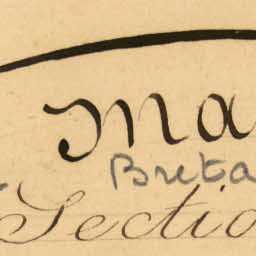 Ma
Breta
Sectio